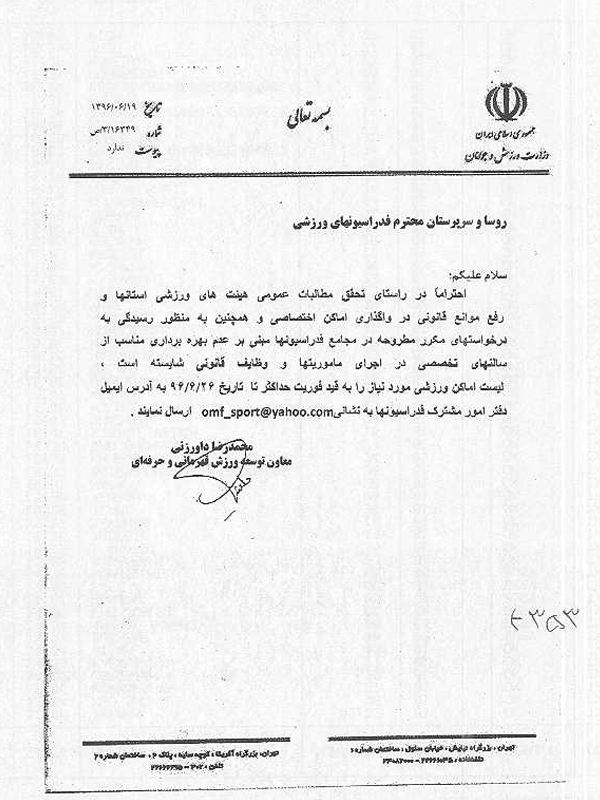 بسمه تعالی
جمهوری اسلامی ایران
وزارت ورزش و جوانان
تاریخ ۱۳۹۶/۰۶/۱۹
شماره ۱۶۳۴۹/۳/ص
پیوست ندارد
روسا و سرپرستان محترم فدراسیونهای ورزشی
سلام علیکم:
احتراماً در راستای تحقق مطالبات عمومی هیئت های ورزشی استانها و
رفع موانع قانونی در واگذاری اماکن اختصاصی و همچنین به منظور رسیدگی به
درخواستهای مکرر مطروحه در مجامع فدراسیونها مبنی بر عدم بهره برداری مناسب از
سالنهای تخصصی در اجرای ماموریتها و وظایف قانونی شایسته است ،
لیست اماکن ورزشی مورد نیاز را به قید فوریت حداکثر تا تاریخ ۹۶/۶/۲۶ به آدرس ایمیل
دفتر امور مشترک فدراسیونها به نشانی omf_sport@yahoo.com ارسال نمایند .
محمدرضا داورزنی
معاون توسعه ورزش قهرمانی و حرفه‌ای
تهران، بزرگراه نیایش، خیابان سئول، ساختمان شماره ۱
تهران، بزرگراه آفریقا، کوچه سایه، پلاک ۴، ساختمان شماره ۲